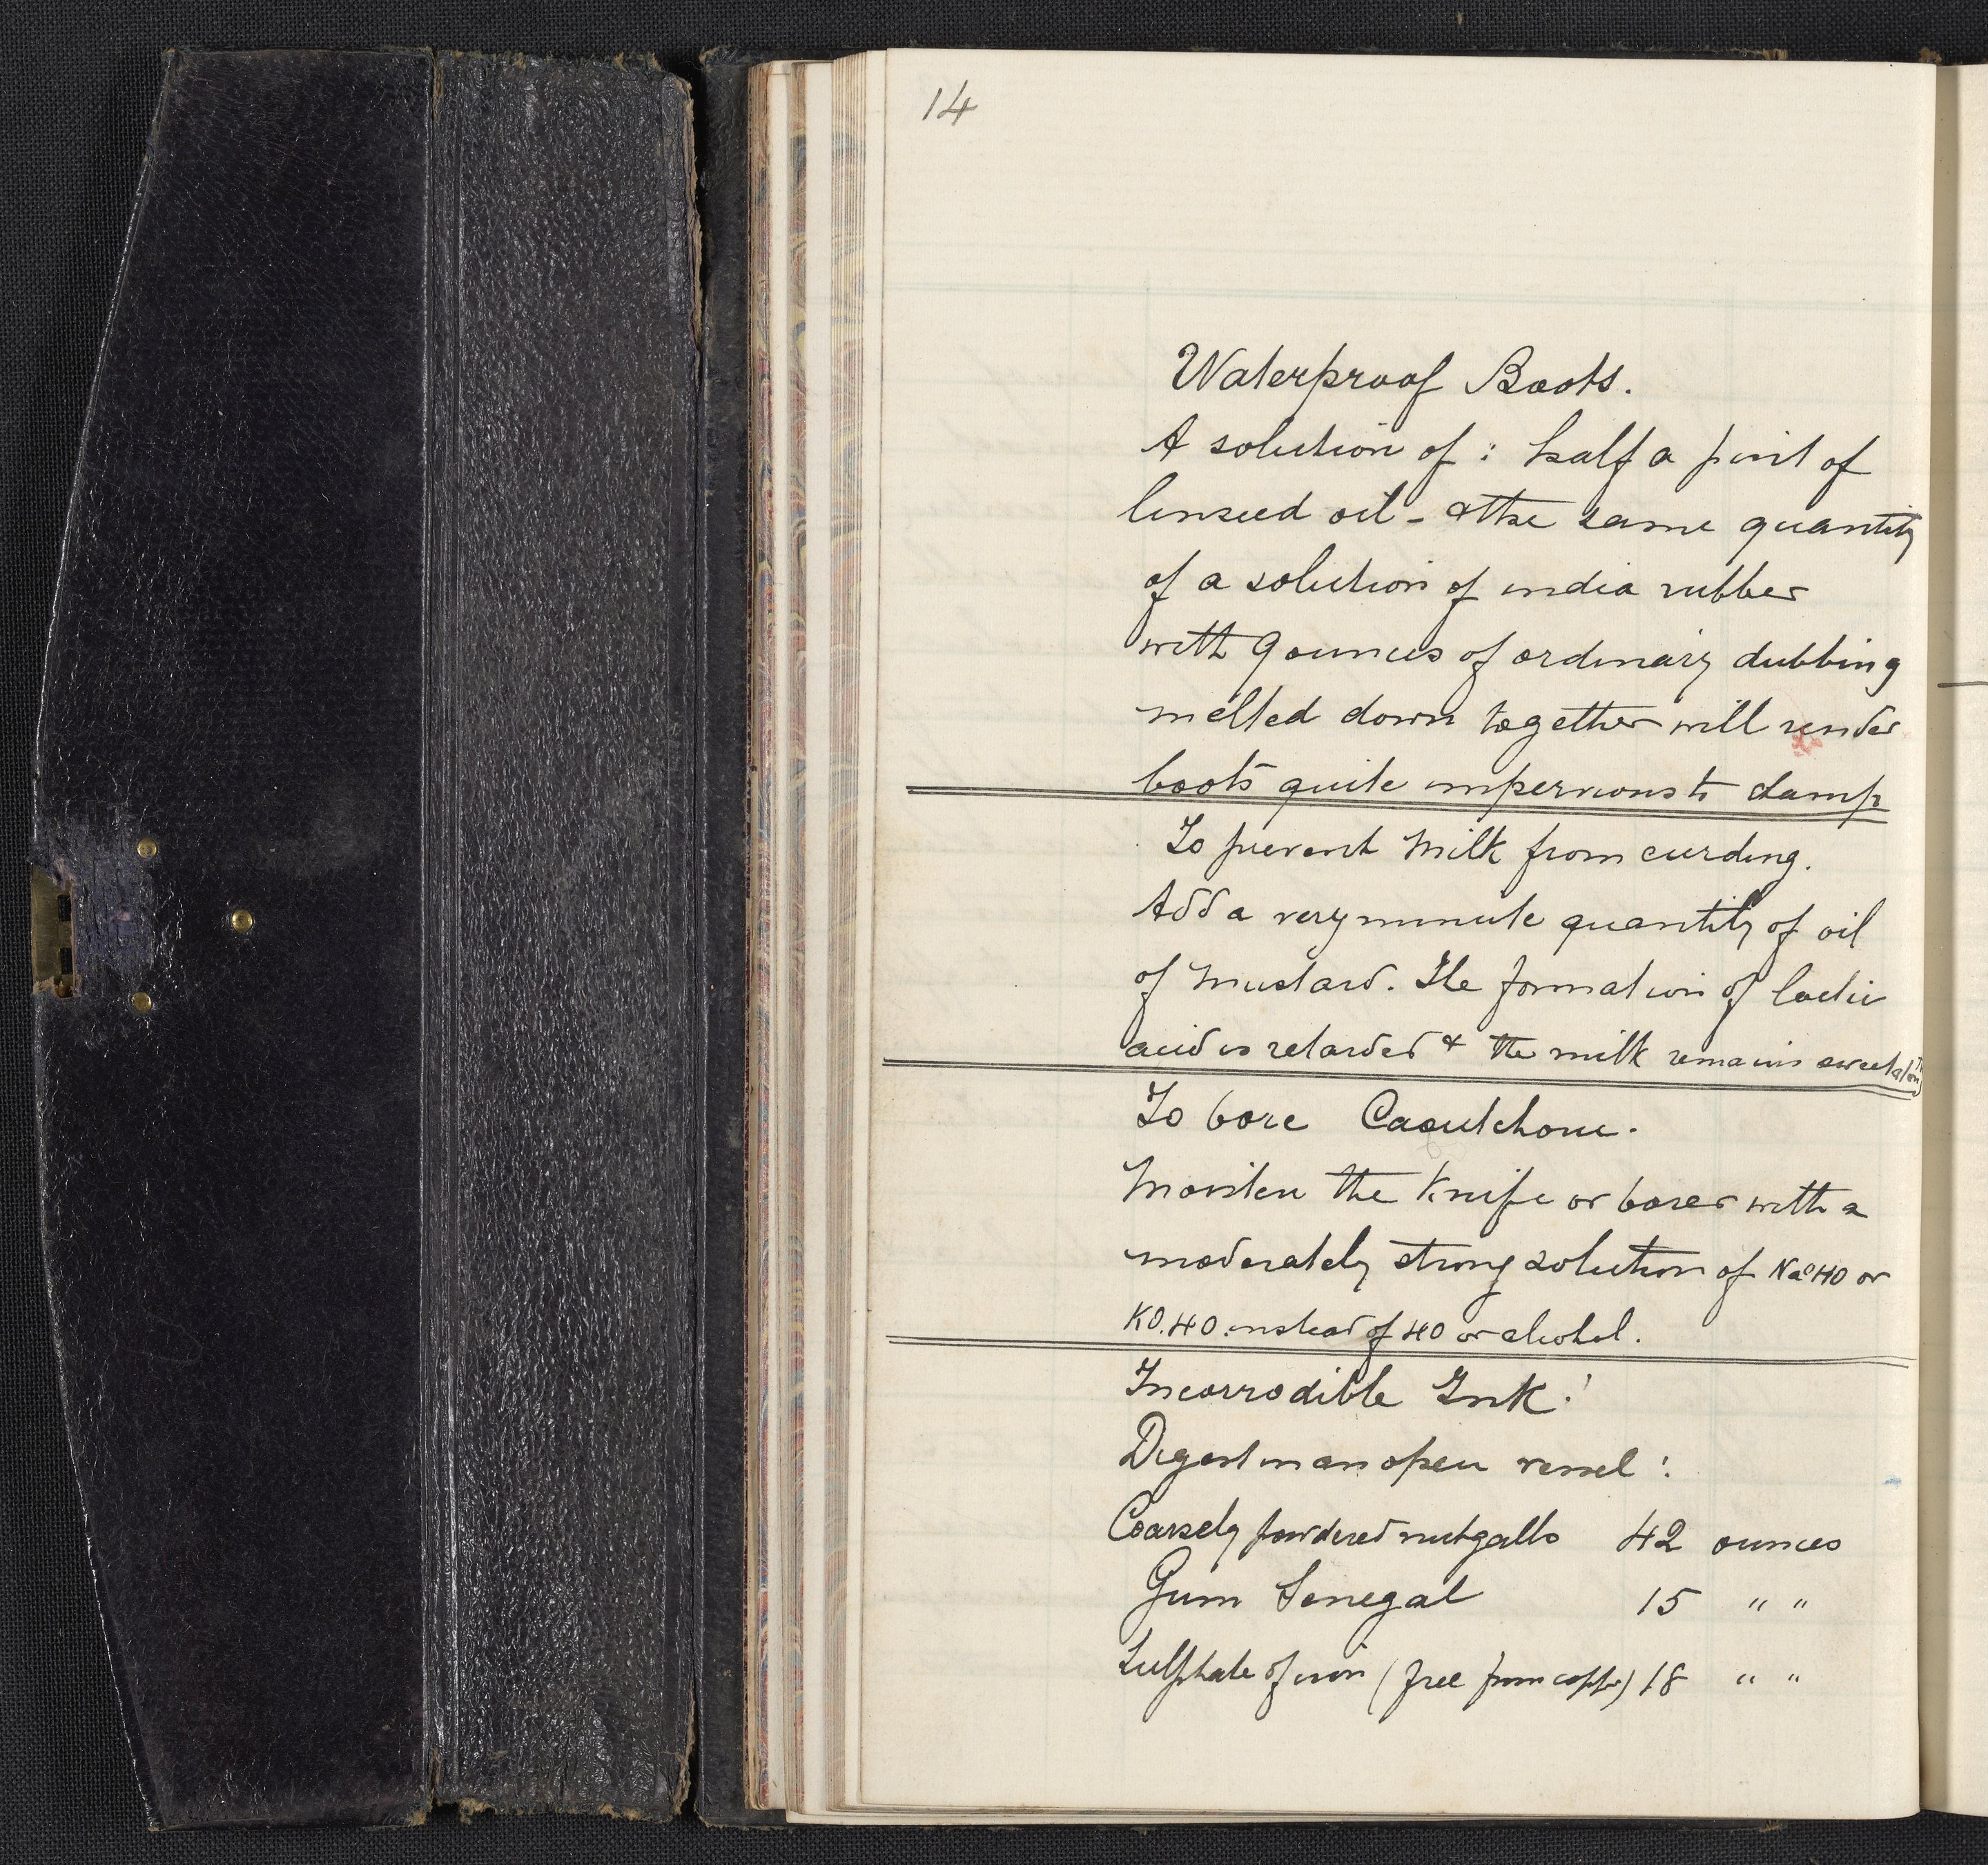 14
Waterproof Boots.
A solution of : half a pint of
linseed oil - & the same quantity
of a solution of india rubber
with 9 ounces of ordinary dubbing
melted down together will render
boots quite impervious to damp
To prevent Milk from curding.
Add a very minute quantity of oil
of Mustard. The formation of lactic
acid is retarded & the milk remains sweet
To bore Caoutchouc.
Moisten the Knife or borer with a
moderately strong solution of NaO HO or
KO.HO. instead of HO or alcohol.
Incorrodible Ink :
Digest in an open vessel :
Coarsely powdered nutgalls 42 ounces
Gum Senegal 15 " "
Sulphate of iron (free from copper) 18 " "